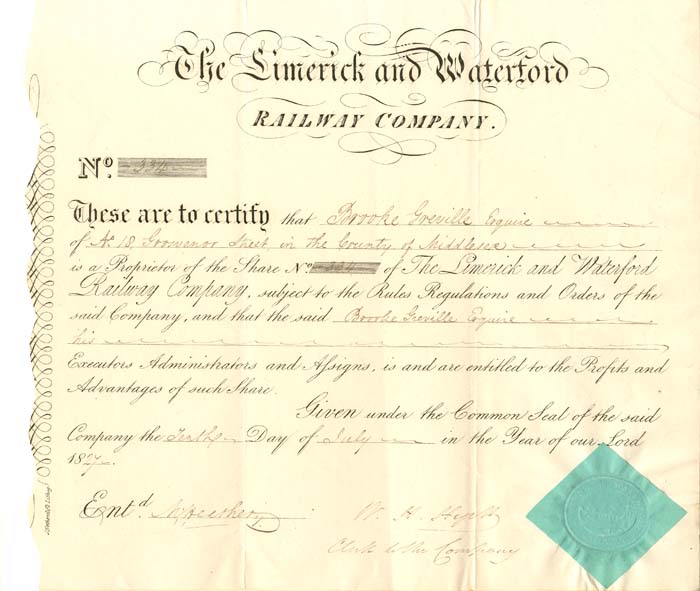 The Limerick and Waterford
RAILWAY COMPANY.
No. 334
These are to certify that Brooke Greville Esquire
of No. 18, Grosvenor Street, in the County of Middlesex
is a Proprietor of the Share No. 334 of The Limerick and Waterford
Railway Company, subject to the Rules Regulations and Orders of the
said Company, and that the said Brooke Greville Esquire
his
Executors Administrators and Aſsigns, is and are entitled to the Profits and
Advantages of such Share.
Given under the Common Seal of the said
Company the Tenth Day of July in the Year of our Lord
1827.
Entd.
W. H. Hyett
Clerk to the Company